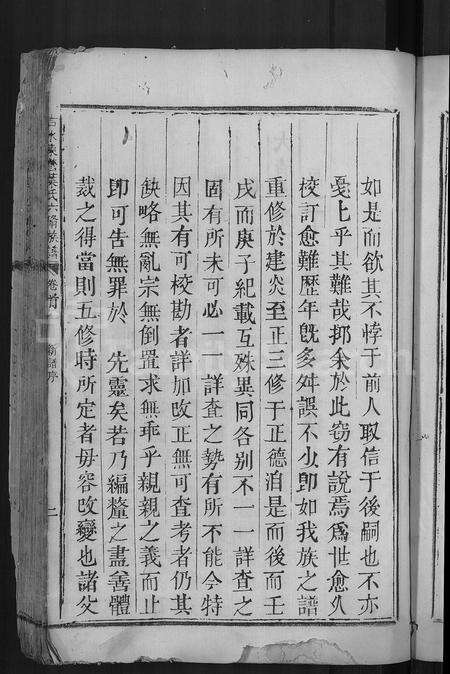 如是而欲其不悖于前人取信于後嗣也不亦
戞乚乎其難哉抑余於此窃有說焉爲世愈久
校訂愈難歷年旣多舛誤不少卽如我族之譜
重修於建炎至正三修于正德洎是而後而壬
戌而庚子紀載互殊異同各别不一一詳查之
固有所未可必一一詳查之勢有所不能今特
因其有可校勘者詳加改正無可查考者仍其
缺略無亂宗無倒置求無乖乎親親之義而止
卽可告無罪於 先靈矣若乃編釐之盡善體
裁之得當則五修時所定者毋容改變也諸父
卷首
二